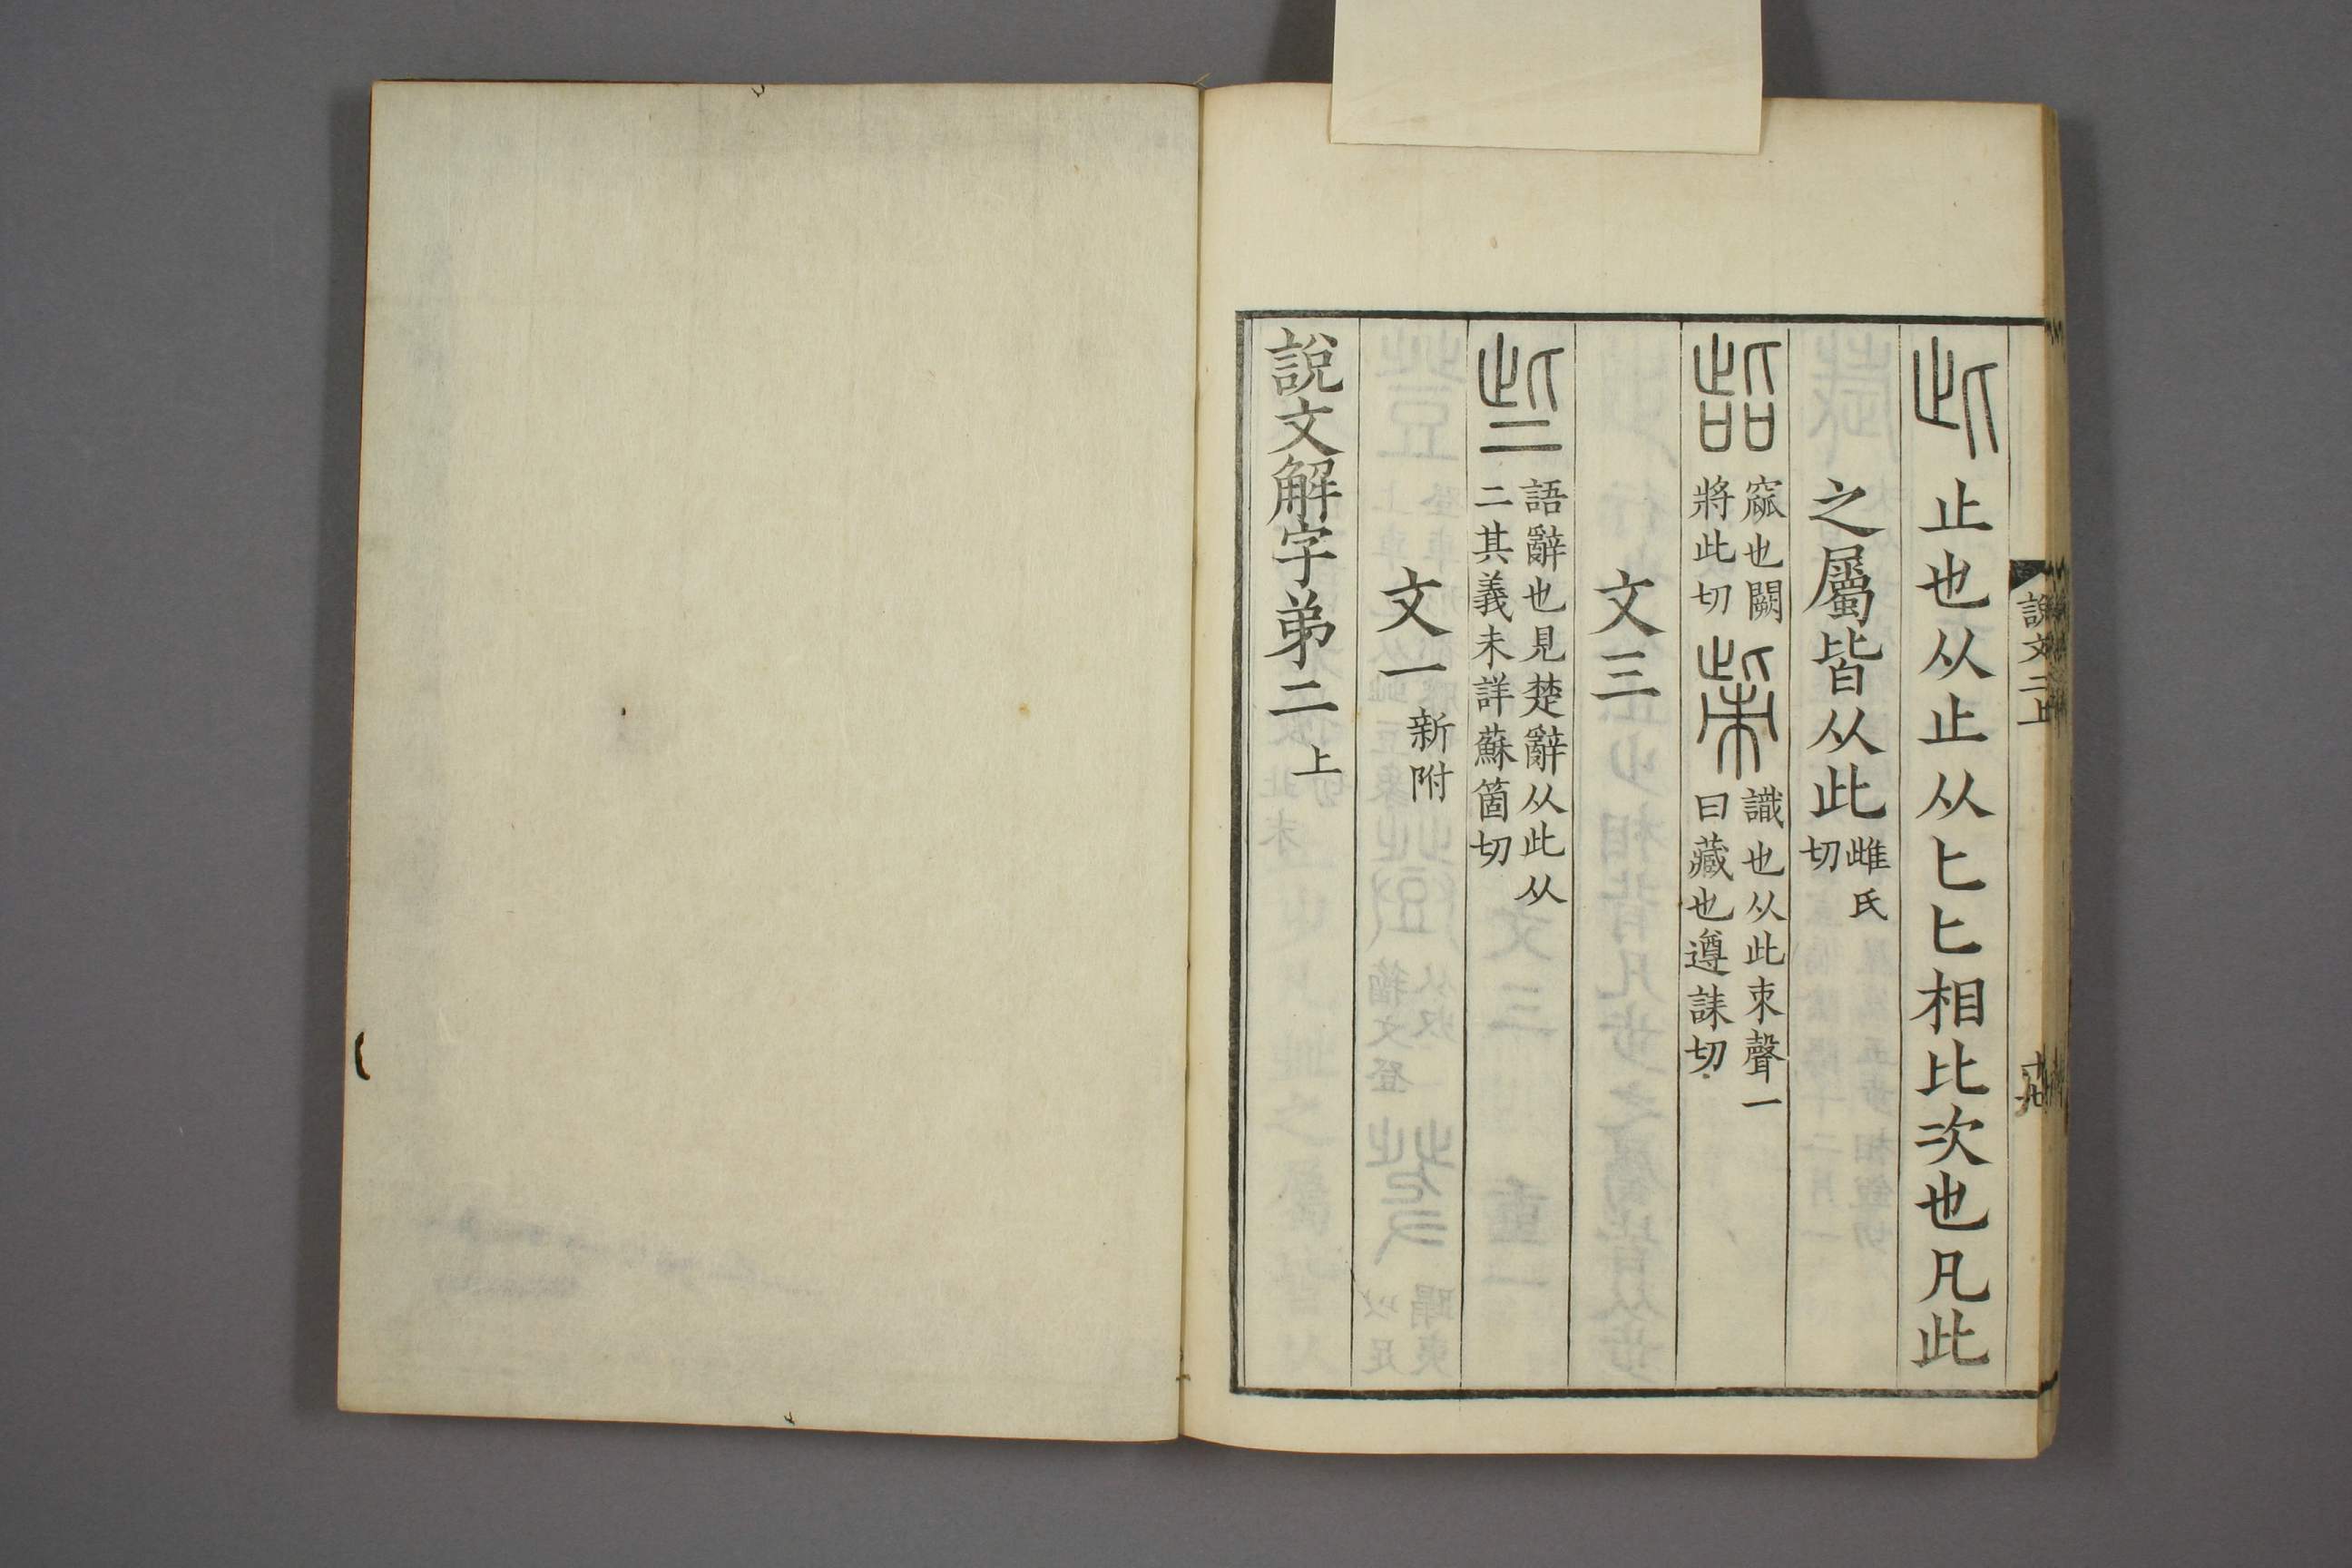 說文二上
此 止也从止从匕匕相比次也凡此
之屬皆从此雌氏切
啙 窳也闕將此切 㭰 識也从此朿聲一曰藏也遵誄切
文三
些 語辭也見楚辭从此从二其義未詳蘇箇切
文一新附
說文解字弟二上